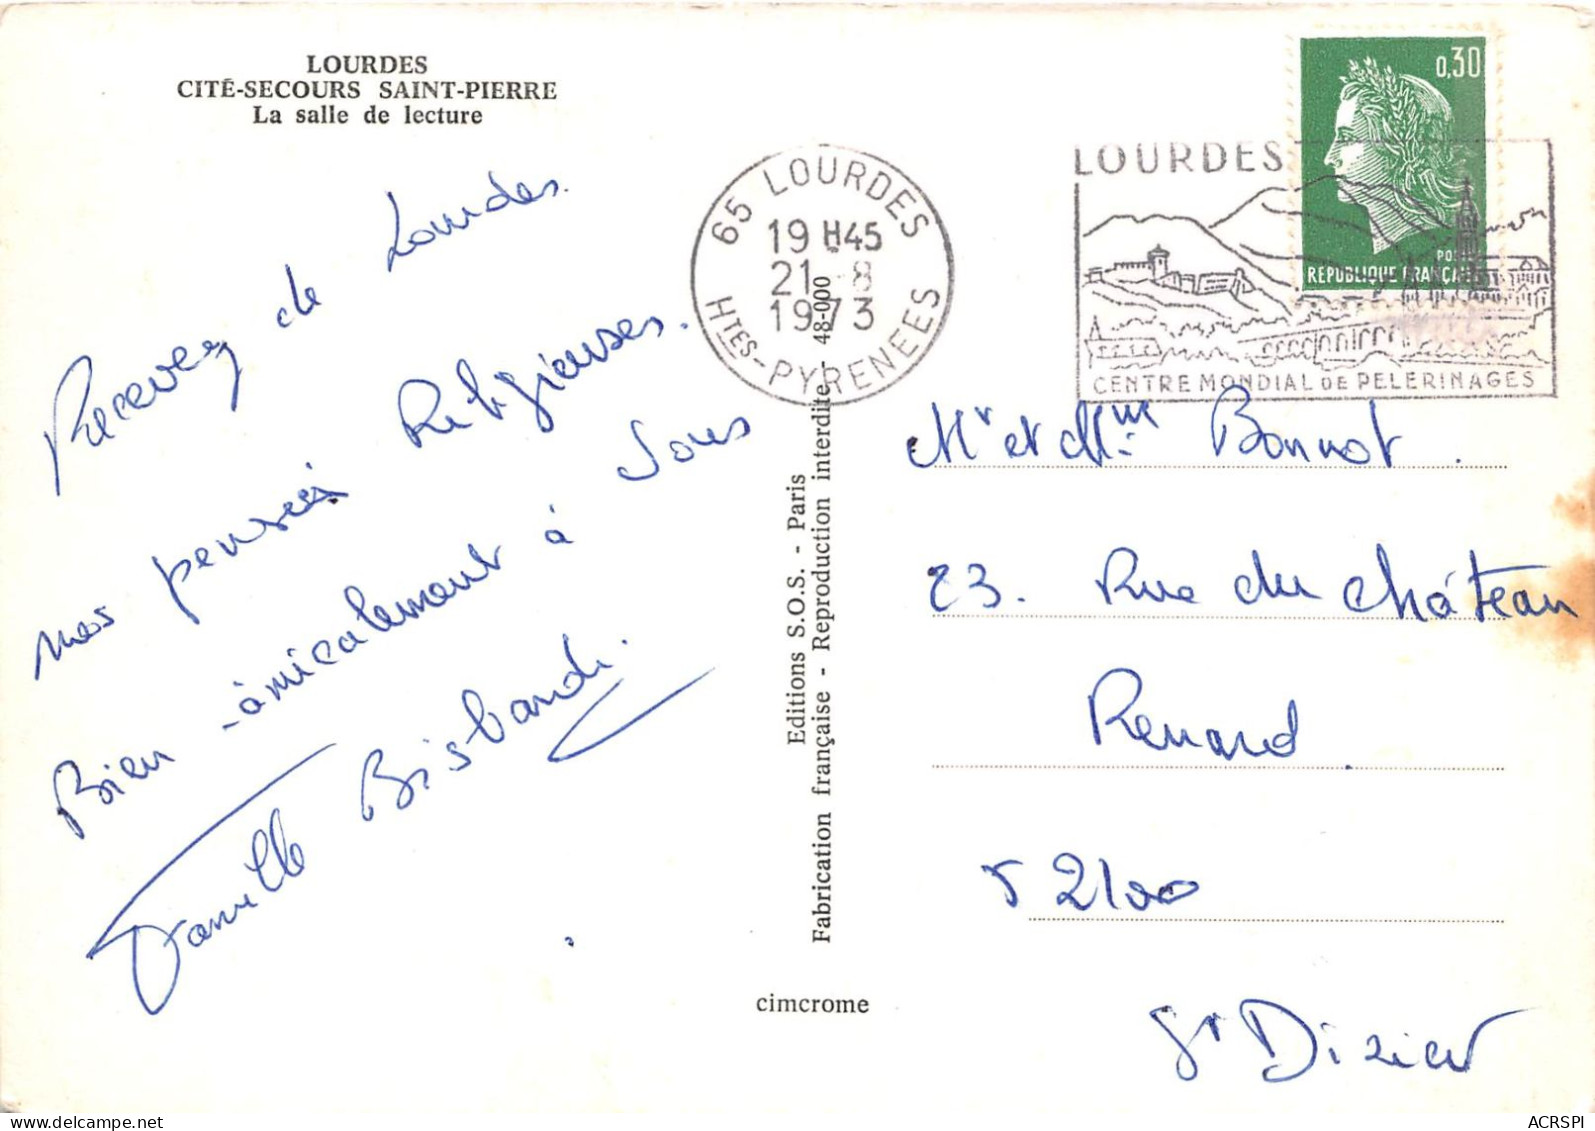 LOURDES
CITÉ-SECOURS SAINT-PIERRE
La salle de lecture
Recevez de Lourdes.
nos pensées Religieuses.
Bien -àmicalement à Tous
Famille
65 LOURDES
19 H45
21 -8
1973
HTES-PYRENEES
LOURDES
CENTRE MONDIAL DE PELERINAGES
0,30
REPUBLIQUE FRANÇAISE
Editions S.O.S. - Paris
Fabrication française - Reproduction interdite - 48-000
cimcrome
Mr et Mme Bonnot.
23. Rue du château
Renard
52100
St Dizier
ACRSPI